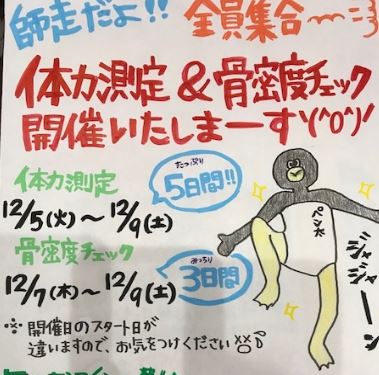 師走だよ!! 全員集合〜
体力測定&骨密度チェック
開催いたしまーす\(^0^)/
体力測定
たっぷり
5日間!!
12/5(火)〜12/9(土)
骨密度チェック
みっちり
3日間
12/7(木)〜12/9(土)
※開催日のスタート日が
違いますので、お気をつけください
ペン太
ジャジャーン